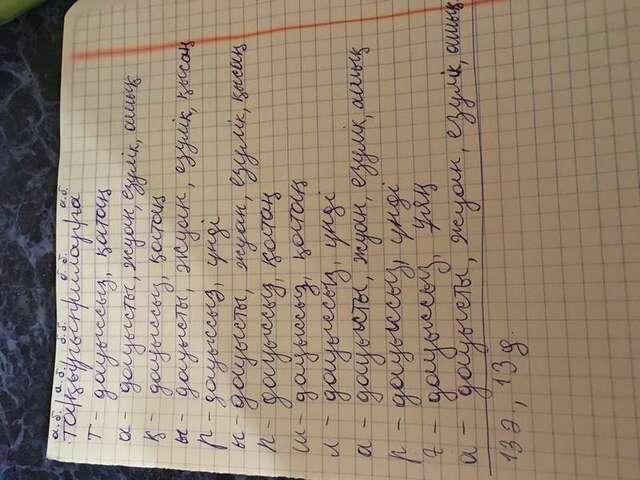 а.б. а.б. б.б. б.б. а.б.
та/қы/рып/шлар/ға
т - дауыссыз, қатаң
а - дауысты, жуан, езулік, ашық
қ - дауыссыз, қатаң
ы - дауысты, жуан, езулік, қысаң
р - дауыссыз, үнді
ы - дауысты, жуан, езулік, қысаң
п - дауыссыз, қатаң
ш - дауыссыз, қатаң
л - дауыссыз, үнді
а - дауысты, жуан, езулік, ашық
р - дауыссыз, үнді
ғ - дауыссыз, ұяң
а - дауысты, жуан, езулік, ашық
13 ә., 13 д.